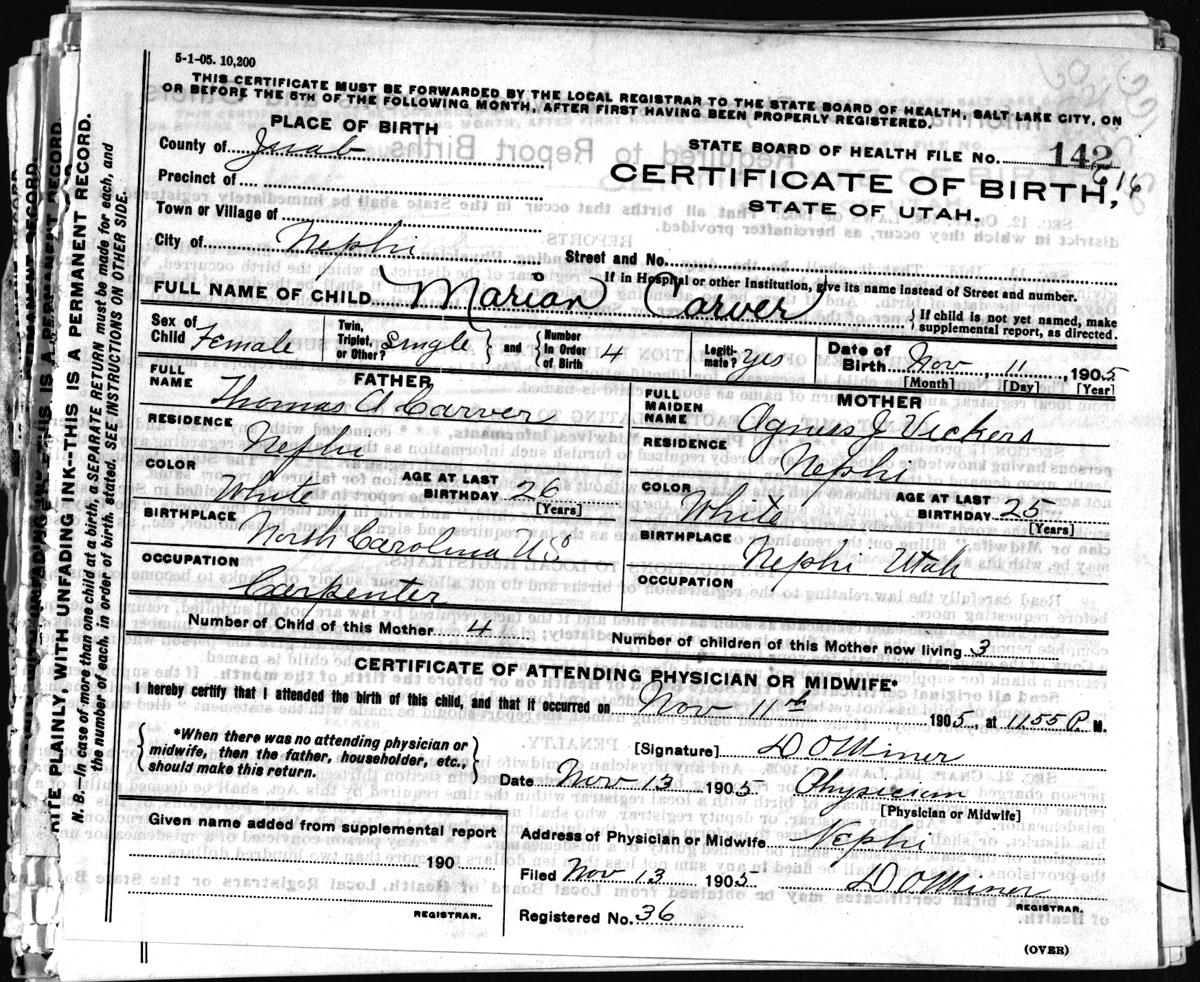 5-1-05. 10,200
THIS CERTIFICATE MUST BE FORWARDED BY THE LOCAL REGISTRAR TO THE STATE BOARD OF HEALTH, SALT LAKE CITY, ON
OR BEFORE THE 5TH OF THE FOLLOWING MONTH, AFTER FIRST HAVING BEEN PROPERLY REGISTERED.
PLACE OF BIRTH
STATE BOARD OF HEALTH FILE No. 142
616
County of Juab
CERTIFICATE OF BIRTH,
STATE OF UTAH.
Precinct of
Town or Village of
City of Nephi
Street and No.
If in Hospital or other Institution, give its name instead of Street and number.
FULL NAME OF CHILD Marion Carver
If child is not yet named, make
supplemental report, as directed.
Sex of
Child Female
Twin,
Triplet,
or Other? Single
and
Number
in Order
of Birth 4
Legiti-
mate? yes
Date of
Birth Nov, 11, 1905
[Month] [Day] [Year]
FATHER
FULL
NAME Thomas A Carver
RESIDENCE Nephi
COLOR White
AGE AT LAST
BIRTHDAY 26
[Years]
BIRTHPLACE North Carolina U.S
OCCUPATION Carpenter
MOTHER
FULL
MAIDEN
NAME Agnes J. Vickers
RESIDENCE Nephi
COLOR White
AGE AT LAST
BIRTHDAY 25
[Years]
BIRTHPLACE Nephi Utah
OCCUPATION
Number of Child of this Mother 4
Number of children of this Mother now living 3
CERTIFICATE OF ATTENDING PHYSICIAN OR MIDWIFE*
I hereby certify that I attended the birth of this child, and that it occurred on Nov 11th 1905, at 1155 P. M.
*When there was no attending physician or
midwife, then the father, householder, etc.,
should make this return.
[Signature] D O Miner
Date Nov 13 1905 Physician
[Physician or Midwife]
Given name added from supplemental report
190
REGISTRAR.
Address of Physician or Midwife Nephi
Filed Nov 13 1905 D O Miner
REGISTRAR.
Registered No. 36
(OVER)
WRITE PLAINLY, WITH UNFADING INK--THIS IS A PERMANENT RECORD.
N. B.--In case of more than one child at a birth, a SEPARATE RETURN must be made for each, and
the number of each, in order of birth, stated. SEE INSTRUCTIONS ON OTHER SIDE.